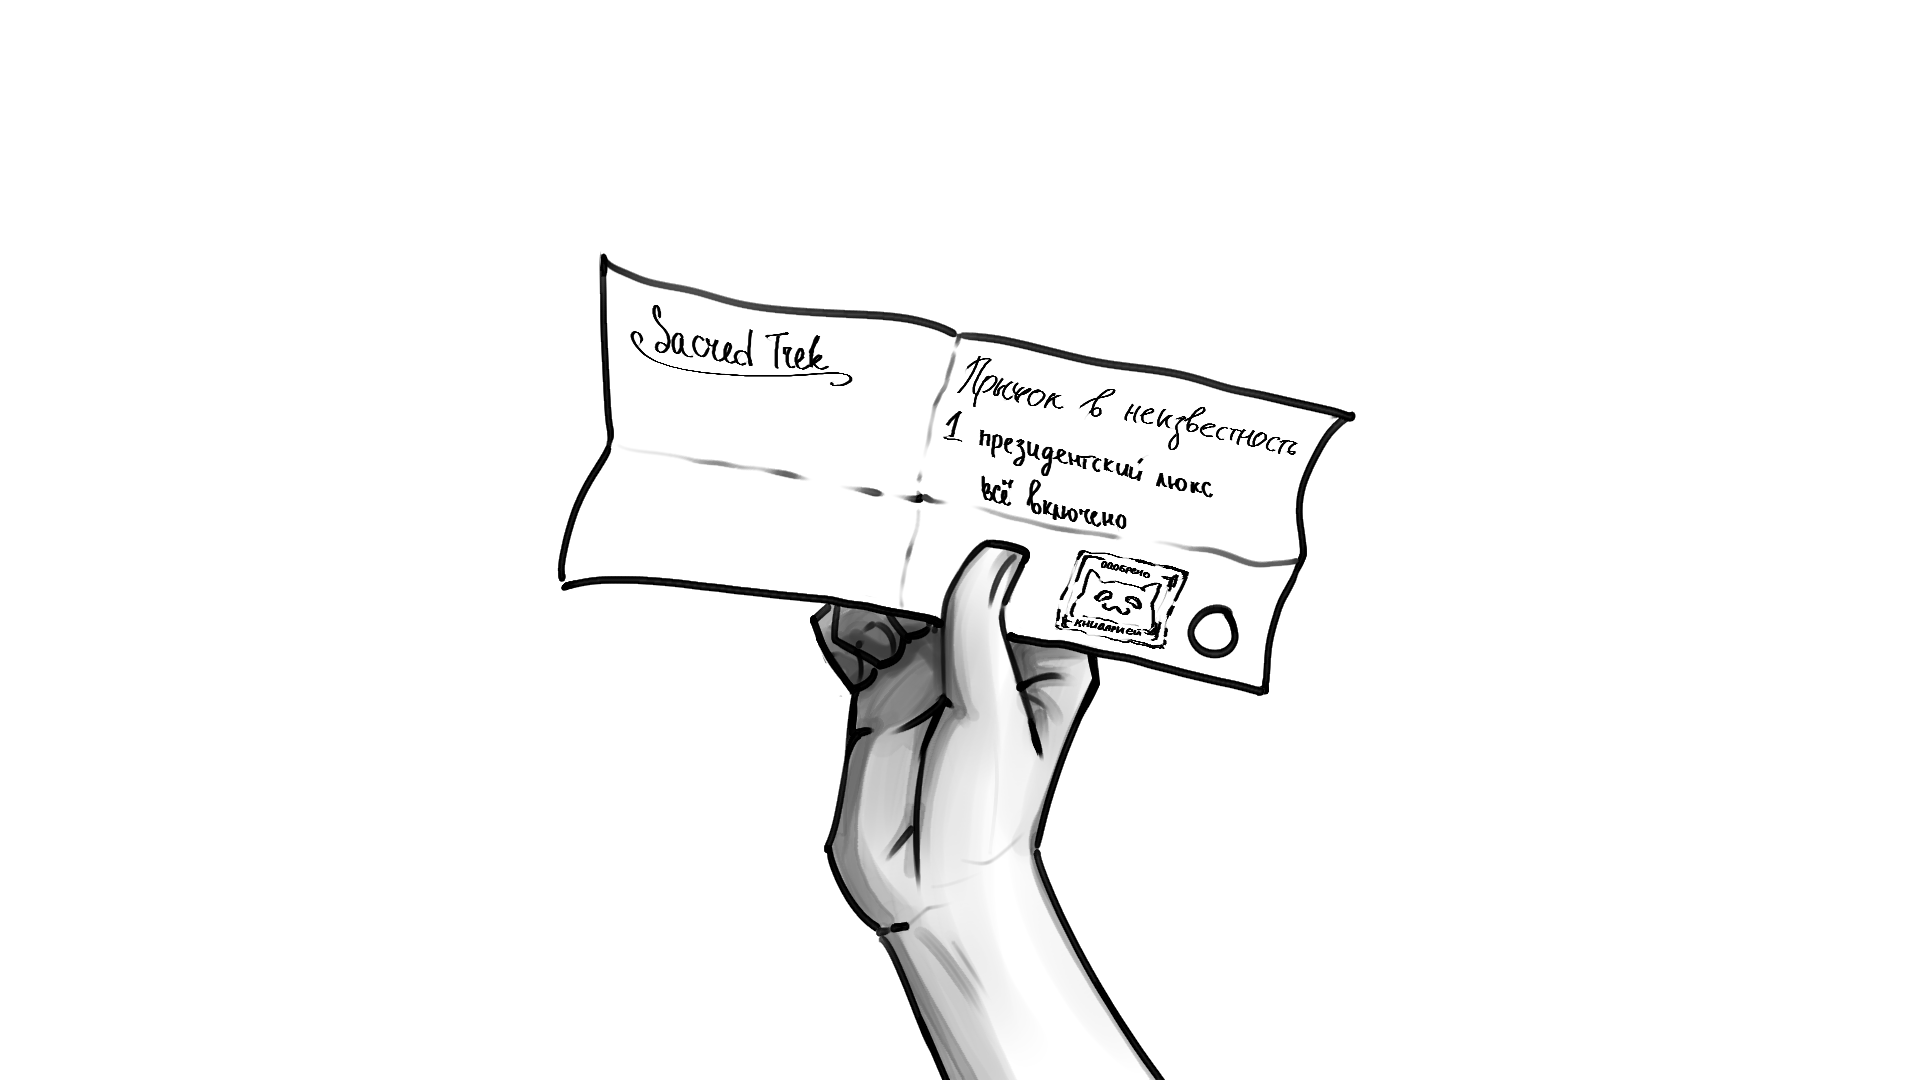 Sacred Trek
Прыжок в неизвестность
1 президентский люкс
всё включено
ОДОБРЕНО
КНИДАРИЕЙ